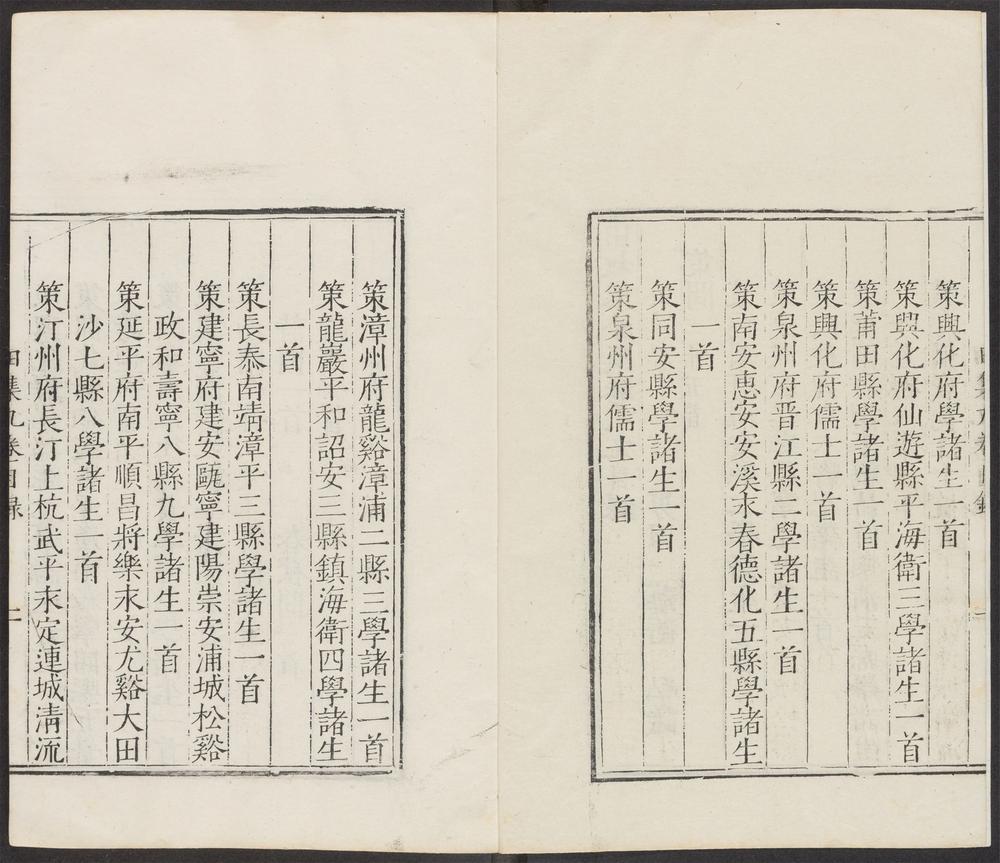 策興化府學諸生一首
策興化府仙遊縣平海衛三學諸生一首
策莆田縣學諸生一首
策興化府儒士一首
策泉州府晋江縣二學諸生一首
策南安惠安安溪永春德化五縣學諸生
一首
策同安縣學諸生一首
策泉州府儒士一首
策漳州府龍谿漳浦二縣三學諸生一首
策龍巖平和詔安三縣鎮海衛四學諸生
一首
策長泰南靖漳平三縣學諸生一首
策建寧府建安甌寧建陽崇安浦城松谿
政和壽寧八縣九學諸生一首
策延平府南平順昌將樂永安尤谿大田
沙七縣八學諸生一首
策汀州府長汀上杭武平永定連城清流
集九卷目録